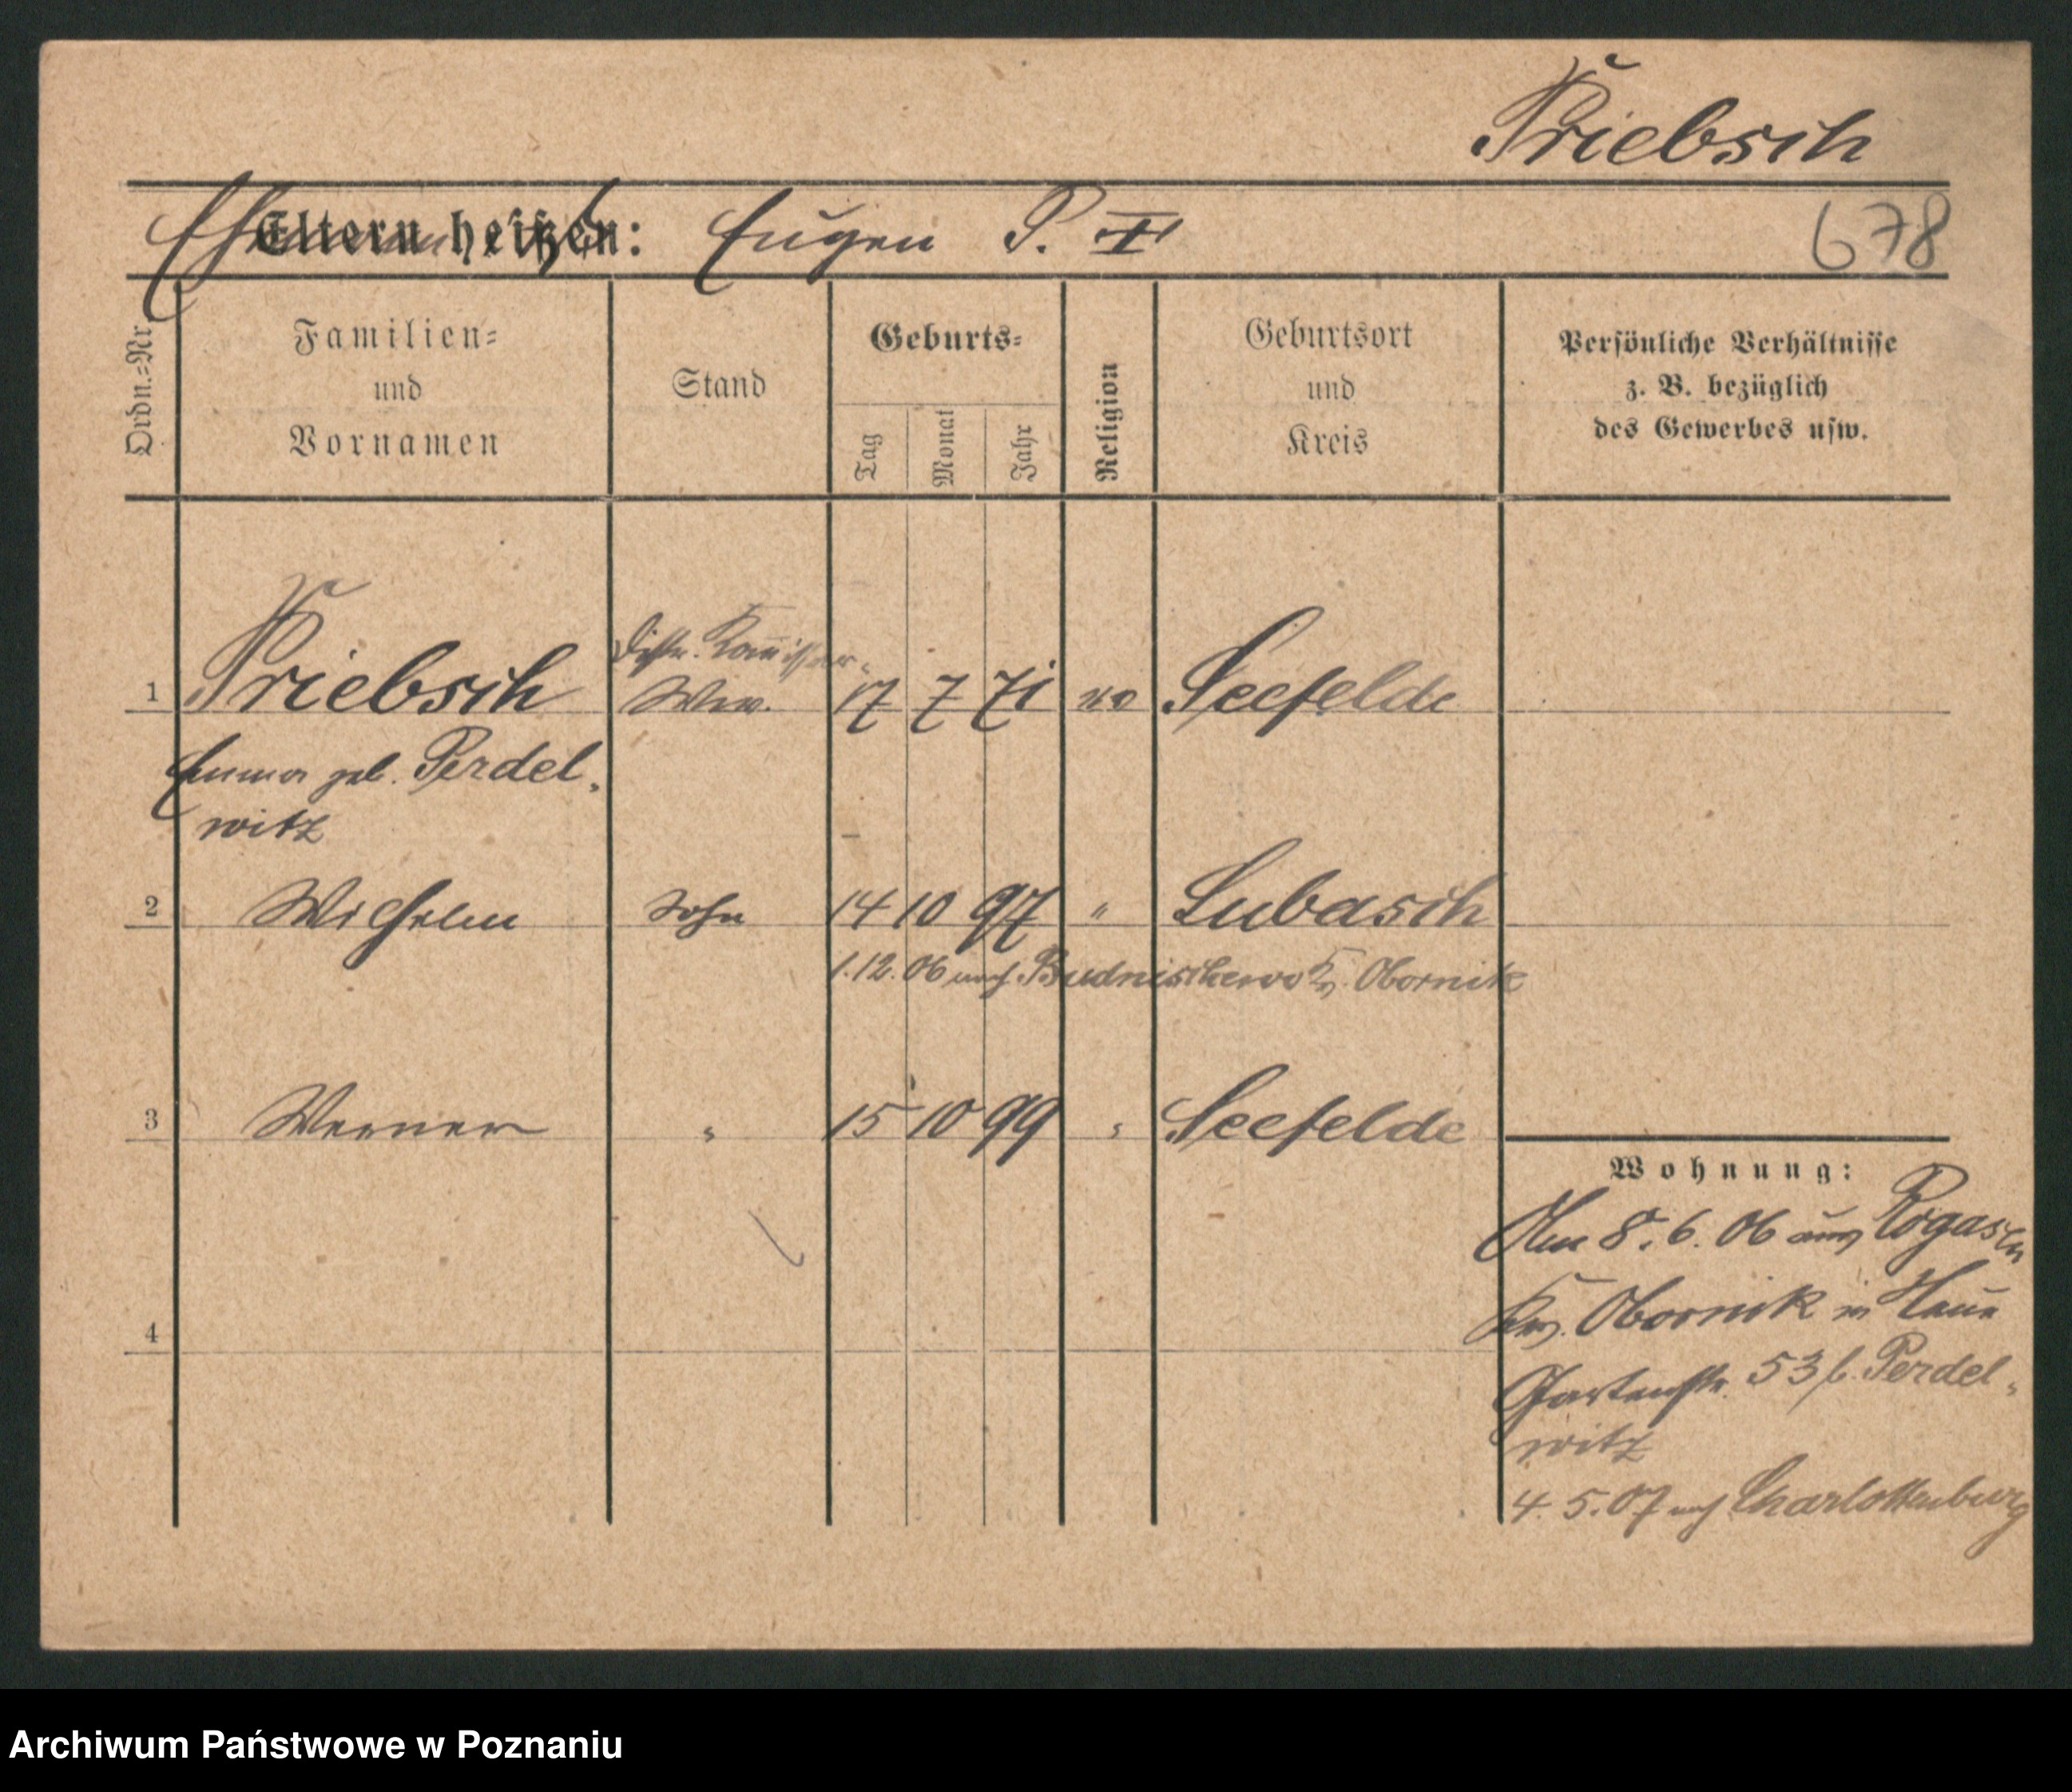 Priebsch
Eltern heißen: Eugen P. †
678
Ordn.=Nr.
Familien=
und
Vornamen
Stand
Geburts=
Tag
Monat
Jahr
Religion
Geburtsort
und
Kreis
Persönliche Verhältnisse
z. B. bezüglich
des Gewerbes usw.
Distr. Kommissar-
1 Priebsch Wwe. 17 7 71 ev Seefelde
Emma geb. Perdel-
witz
2 Wilhelm Sohn 14 10 97 " Lubasch
1.12.06 nach Budnischewo Kr. Obornik
3 Werner " 15 10 99 " Seefelde
Wohnung:
Am 8.6.06 aus Rogasen
Krs. Obornik in
Gartenstr. 53 b. Perdel-
witz
4.5.07 nach Charlottenburg
4
Archiwum Państwowe w Poznaniu